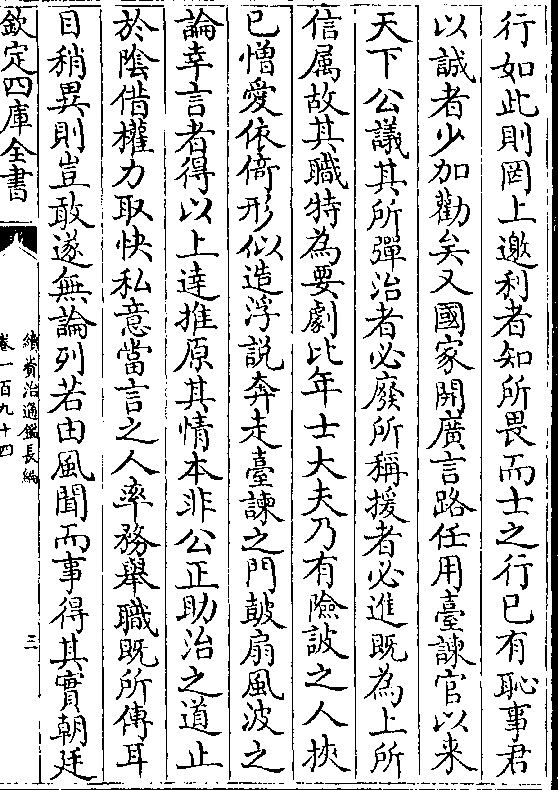 行如此則罔上邀利者知所畏而士之行已有恥事君
以誠者少加勸矣又國家開廣言路任用臺諫官以来
天下公議其所彈治者必廢所稱援者必進既為上所
信属故其職特為要劇比年士大夫乃有險詖之人挾
已憎愛依倚形似造浮説奔走臺諫之門鼓扇風波之
論幸言者得以上達推原其情本非公正助治之道止
於陰借權力取快私意當言之人率務舉職既所傳耳
目稍異則豈敢遂無論列若由風聞而事得其實朝廷
欽定四庫全書
續資治通鑑長編
卷一百九十四
三